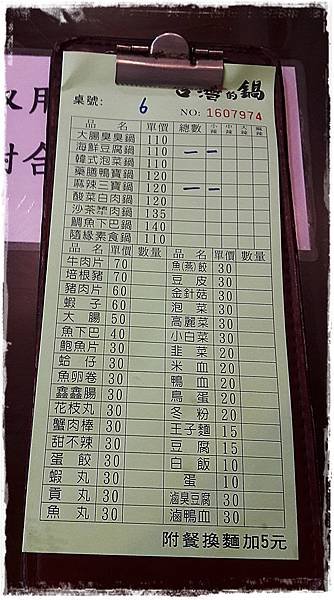 台灣的鍋
桌號: 6 NO: 1607974
品名 單價 總數 小辣 中辣 大辣 麻辣
大腸臭臭鍋 110
海鮮豆腐鍋 110 一 一
韓式泡菜鍋 110
藥膳鴨寶鍋 120
麻辣三寶鍋 120 一 一
酸菜白肉鍋 120
沙茶羊肉鍋 135
鯛魚下巴鍋 140
隨緣素食鍋 110
品名 單價 數量 品名 單價 數量
牛肉片 70 魚(燕)餃 30
培根豬 70 豆皮 30
豬肉片 60 金針菇 30
蝦子 60 泡菜 30
大腸 50 高麗菜 30
魚下巴 40 小白菜 30
鮑魚片 30 韭菜 20
蛤仔 30 米血 20
魚卵卷 30 鴨血 20
鑫鑫腸 30 鳥蛋 20
花枝丸 30 冬粉 20
蟹肉棒 30 王子麵 15
甜不辣 30 豆腐 15
蛋餃 30 白飯 10
蝦丸 30 蛋 10
貢丸 30 滷臭豆腐 30
魚丸 30 滷鴨血 30
附餐換麵加5元